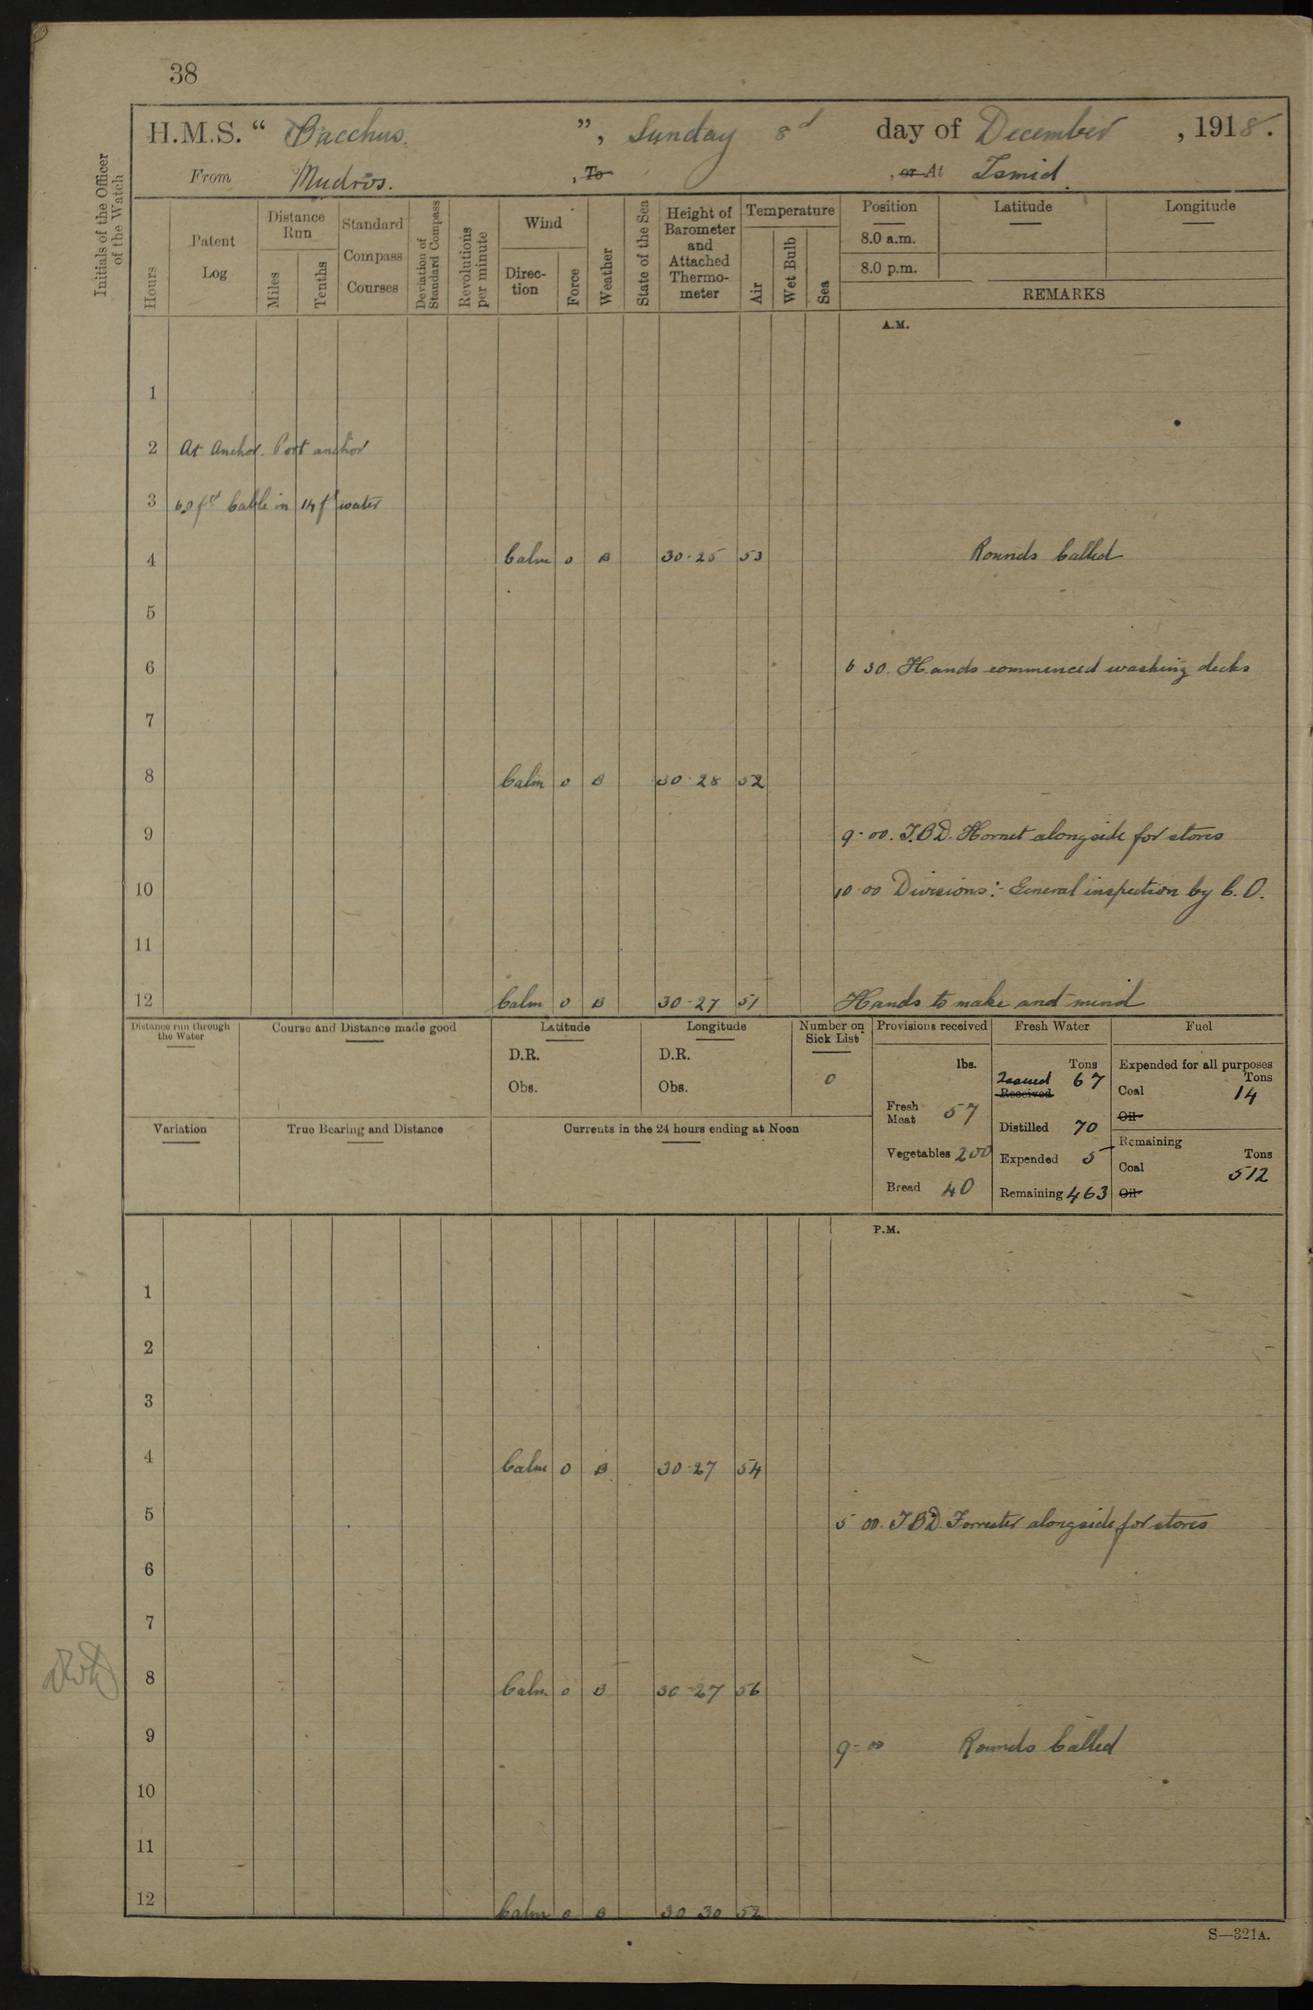 38
H.M.S. “ Bacchus. ”, Sunday 8d day of December , 1918.
From Mudros. , To , or At Ismid.
Initials of the Officer of the Watch
Hours
Patent Log
Distance Run
Miles
Tenths
Standard Compass Courses
Deviation of Standard Compass
Revolutions per minute
Wind
Direction
Force
Weather
State of the Sea
Height of Barometer and Attached Thermometer
Temperature
Air
Wet Bulb
Sea
Position
8.0 a.m.
8.0 p.m.
Latitude
Longitude
REMARKS
A.M.
1
2 At Anchor. Port anchor
3 60 fd Cable in 14 fd water
4 Calm 0 B 30.25 53 Rounds Called
5
6 6 30. Hands commenced washing decks
7
8 Calm 0 B 30.28 52
9 9.00. T.B.D. Hornet alongside for stores
10 10.00 Divisions:- General inspection by C.O.
11
12 Calm 0 B 30.27 51 Hands to make and mend
Distance run through the Water
Course and Distance made good
Latitude
D.R.
Obs.
Longitude
D.R.
Obs.
Number on Sick List
0
Provisions received
lbs.
Fresh Meat 57
Vegetables 200
Bread 40
Fresh Water
Tons
Issued 67
Received
Distilled 70
Expended 5
Remaining 463
Fuel
Expended for all purposes
Tons
Coal 14
Oil
Remaining
Tons
Coal 512
Oil
Variation
True Bearing and Distance
Currents in the 24 hours ending at Noon
P.M.
1
2
3
4 Calm 0 B 30.27 54
5 5 00. T.B.D. Forrester alongside for stores
6
7
8 Calm 0 B 30.27 56
9 9-00 Rounds Called
10
11
12 Calm 0 B 30 30 52
S—321A.